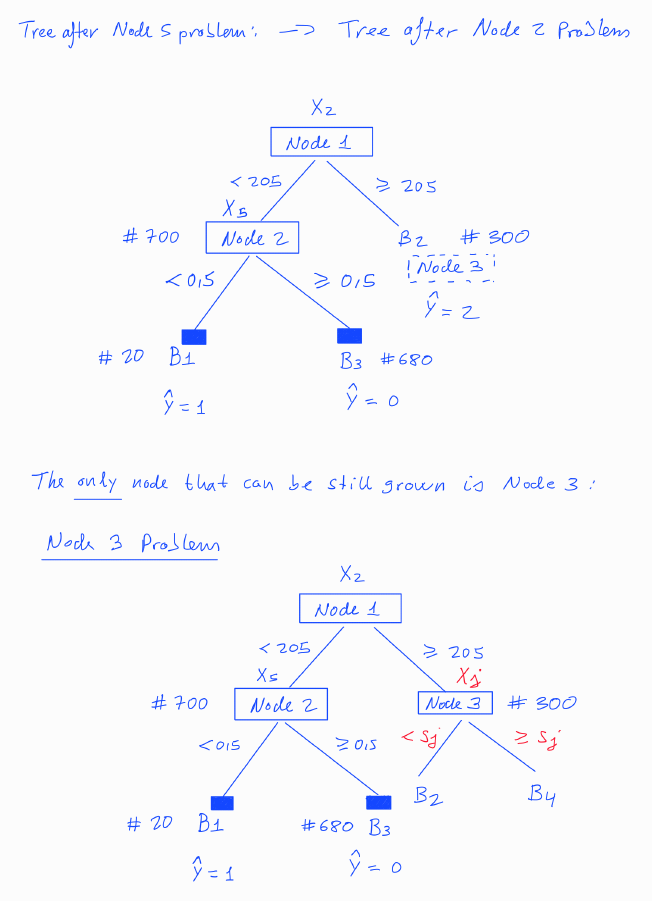 Tree after Node 5 problem: → Tree after Node 2 Problem
X2
Node 1
< 205 ≥ 205
X5
# 700 Node 2 B2 # 300
Node 3
< 0,5 ≥ 0,5
Ŷ = 2
# 20 B1 B3 # 680
Ŷ = 1 Ŷ = 0
The only node that can be still grown is Node 3:
Node 3 Problem
X2
Node 1
< 205 ≥ 205
X5 Xj
# 700 Node 2 Node 3 # 300
< 0,5 ≥ 0,5 < Sj ≥ Sj
B2 B4
# 20 B1 # 680 B3
Ŷ = 1 Ŷ = 0